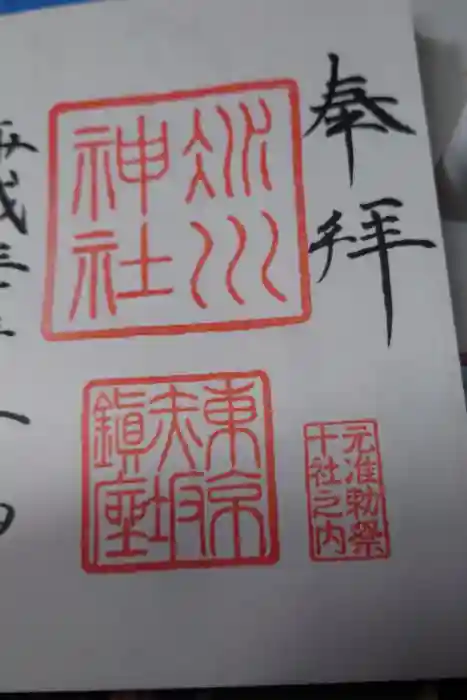 奉拝
氷川
神社
東京
赤坂
鎮座
元准勅祭
十社之内
平成三十